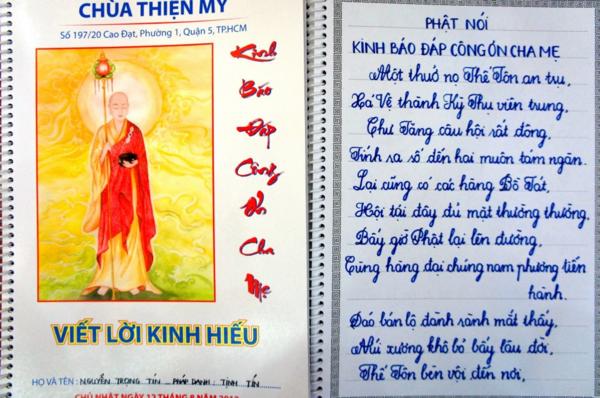 CHÙA THIỆN MỸ
Số 197/20 Cao Đạt, Phường 1, Quận 5, TP.HCM
Kinh
Báo
Đáp
Công
Ơn
Cha
Mẹ
VIẾT LỜI KINH HIẾU
HỌ VÀ TÊN : NGUYỄN TRỌNG TÍN PHÁP DANH : TỊNH TÍN
CHỦ NHẬT NGÀY 12 THÁNG 8 NĂM
PHẬT NÓI
KINH BÁO ĐÁP CÔNG ƠN CHA MẸ
Một thuở nọ Thế Tôn an trụ,
Xá Vệ thành Kỳ Thụ viên trung,
Chư Tăng câu hội rất đông,
Tính ra số đến hai muôn tám ngàn.
Lại cũng có các hàng Bồ Tát,
Hội tại đây đủ mặt thường thường,
Bấy giờ Phật lại lên đường,
Cùng hàng đại chúng nam phương tiến
hành.
Đáo bán lộ đành rành mắt thấy,
Núi xương khô bỏ bấy lâu đời,
Thế Tôn bèn vội đến nơi,